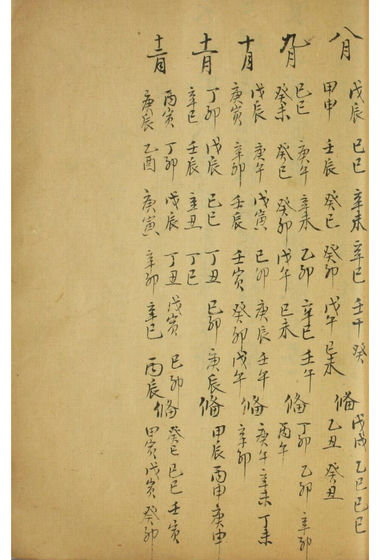 八月
戊辰 己巳 辛未 辛巳 壬午 癸 戊戌 乙巳 己巳
甲申 壬辰 癸巳 癸卯 戊午 己未 脩 乙丑 癸丑
九月
己巳 庚午 辛未 乙卯 辛巳 壬午 脩 丁卯 乙卯 辛卯
癸未 癸巳 癸卯 戊午 己未 丙午
十月
戊辰 庚午 戊寅 己卯 庚辰 壬午 脩 庚午 辛未 丁未
庚寅 辛卯 壬辰 壬寅 癸卯 戊午 辛卯
十一月
丁卯 戊辰 己巳 丁丑 己卯 庚辰 脩 甲辰 丙申 庚申
辛巳 壬辰 辛丑 丁巳
十二月
丙寅 丁卯 戊辰 丁丑 戊寅 己卯 脩 癸巳 己巳 壬寅
庚辰 乙酉 庚寅 辛卯 辛巳 丙辰 甲寅 戊寅 癸卯